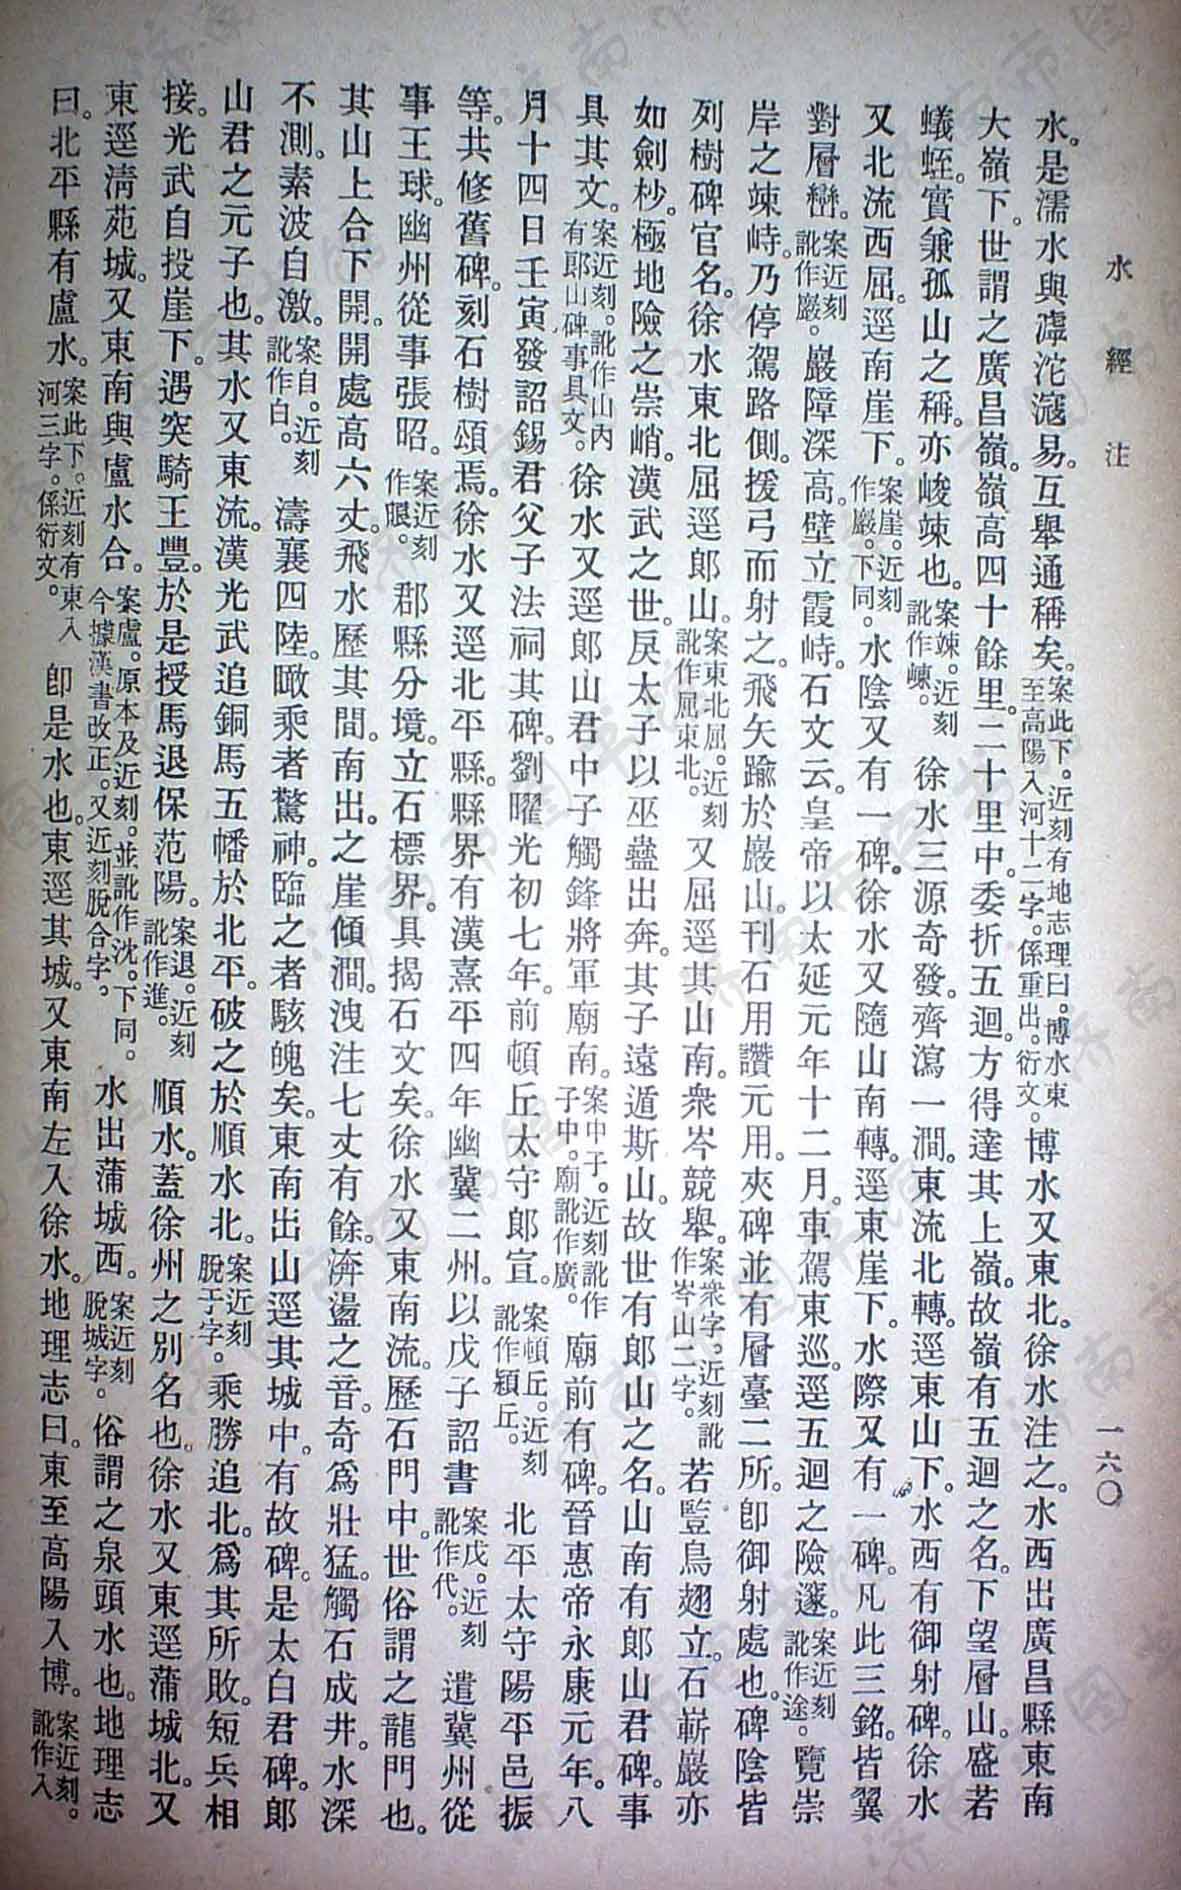 水經注
一六〇
水。是濡水與滹沱滱易。互舉通稱矣。案此下。近刻有地志理曰。博水東至高陽入河十二字。係重出。衍文。博水又東北。徐水注之。水西出廣昌縣東南
大嶺下。世謂之廣昌嶺。嶺高四十餘里。二十里中。委折五迴。方得達其上嶺。故嶺有五迴之名。下望層山。盛若
蟻蛭。實兼孤山之稱。亦峻竦也。案竦。近刻訛作㟬。徐水三源奇發。齊瀉一澗。東流北轉。逕東山下。水西有御射碑。徐水
又北流西屈。逕南崖下。案崖。近刻作巖。下同。水陰又有一碑。徐水又隨山南轉。逕東崖下。水際又有一碑。凡此三銘。皆翼
對層巒。案近刻訛作巖。巖障深高。壁立霞峙。石文云。皇帝以太延元年十二月。車駕東巡。逕五迴之險邃。案近刻訛作途。覽崇
岸之竦峙。乃停駕路側。援弓而射之。飛矢踰於巖山。刊石用讚元用。夾碑並有層臺二所。卽御射處也。碑陰皆
列樹碑官名。徐水東北屈逕郎山。案東北屈。近刻訛作屈東北。又屈逕其山南。衆岑競舉。案衆字。近刻訛作岑山二字。若豎鳥翅立。石嶄巖亦
如劍杪。極地險之崇峭。漢武之世。戾太子以巫蠱出奔。其子遠遁斯山。故世有郎山之名。山南有郎山君碑。事
具其文。案近刻。訛作山內有郞山碑事具文。徐水又逕郎山君中子觸鋒將軍廟南。案中子。近刻訛作子中。廟訛作廣。廟前有碑。晉惠帝永康元年。八
月十四日壬寅。發詔錫君父子法祠其碑。劉曜光初七年。前頓丘太守郎宣。案頓丘。近刻訛作潁丘。北平太守陽平邑振
等。共修舊碑。刻石樹頌焉。徐水又逕北平縣。縣界有漢熹平四年幽冀二州。以戊子詔書案戊。近刻訛作代。遣冀州從
事王球。幽州從事張昭。案近刻作䁐。郡縣分境。立石標界。具揭石文矣。徐水又東南流。歷石門中。世俗謂之龍門也。
其山上合下開。開處高六丈。飛水歷其間。南出。之崖傾澗。洩注七丈有餘。渀盪之音。奇爲壯猛。觸石成井。水深
不測。素波白激。案自。近刻訛作白。濤襄四陸。瞰乘者驚神。臨之者駭魄矣。東南出山逕其城中。有故碑。是太白君碑。郎
山君之元子也。其水又東流。漢光武追銅馬五幡於北平。破之於順水北。案近刻脫于字。乘勝追北。爲其所敗。短兵相
接。光武自投崖下。遇突騎王豐。於是授馬退保范陽。案退。近刻訛作進。順水。蓋徐州之別名也。徐水又東逕蒲城北。又
東逕清苑城。又東南與盧水合。案盧。原本及近刻。並訛作沈。下同。今據漢書改正。又近刻脫合字。水出蒲城西。案近刻脫城字。俗謂之泉頭水也。地理志
曰。北平縣有盧水。案此下。近刻有東入河三字。係衍文。卽是水也。東逕其城。又東南左入徐水。地理志曰。東至高陽入博。案近刻。訛作入